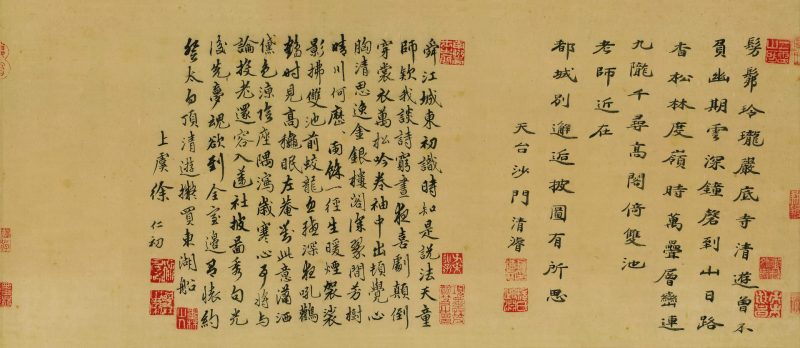 髣髴玲瓏巖底寺清遊曾不
負幽期雲深鐘磬到山日路
香松林度嶺時萬疊層巒連
九隴千尋高閣倚雙池
老師近在
都城別邂逅披圖有所思
天台沙門清濬
舜江城東初識時知是說法天童
師欵我談詩窮晝夜喜劇顛倒
穿裳衣萬松吟卷袖中出頓覺心
胸清思逸金銀樓閣深翳間芳樹
晴川何歷南餘一徑生暖煙袈裟
影拂雙池前蛟龍深夜吼鸛
鶴時見高巢眠左菴此意瀟洒
黛色涼陰座隅瀉歲寒心事將與
論投老還容入蓮社披圖秀句光
後先夢魂欲到全室邊有懷約
登太白頂清遊擬買東湖船
上虞徐仁初